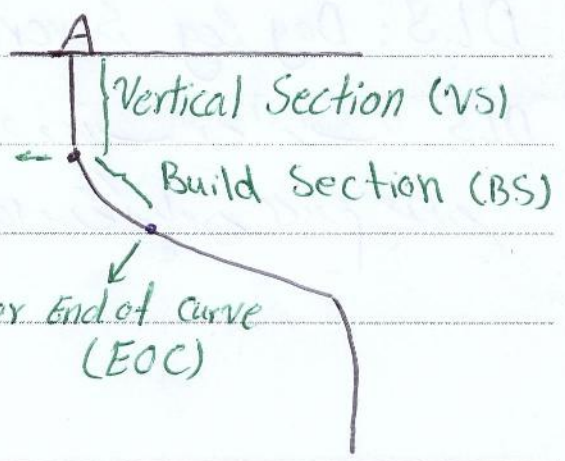 Vertical Section (VS)
Build Section (BS)
or End of Curve
(EOC)